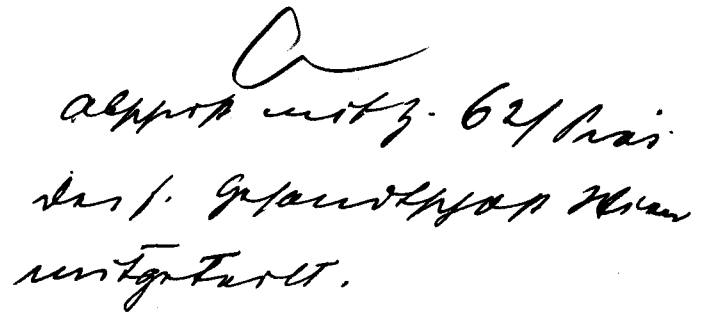 Abschrift mit Z. 62/Präs.
der s. Gesandtschaft Wien
mitgeteilt.